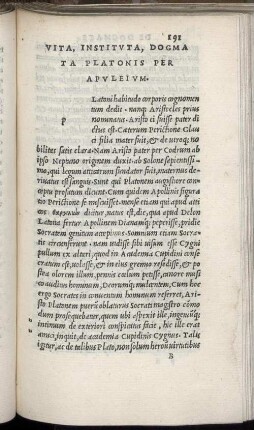 191
VITA, INSTITVTA, DOGMA
TA PLATONIS PER
APVLEIVM.
P
Latoni habitudo corporis cognomen
tum dedit. nanq; Aristocles prius
nominatus. Aristo ei fuisse pater di
ctus est. Cæterum Perictione Glau
ci filia mater fuit, & de utroq; no
bilitas satis clara. Nam Aristo pater per Codrum ab
ipso Neptuno originem duxit. ab Solone sapientissi-
mo, qui legum atticarum fundator fuit, maternus de-
riuatus est sanguis. Sunt qui Platonem augustiore con-
ceptu prosatum dicunt. Cum quidem Apollinis figura-
tio Perictione se miscuisset. mense etiam qui apud atti
cos dicitur, natus est, die, qua apud Delon
Latona fertur Apollinem Dianamq; peperisse, pridie
Socratem genitum accepimus. Somnium etiam Socra-
tis circunfertur. nam uidisse sibi uisus est Cygni
pullum ex altari, quod in Academia Cupidini conse-
cratum est, uolasse, & in eius gremio resedisse, & po
stea olorem illum, pennis cœlum petisse, canore musi
co audibus hominum, Deorumq; mulcentem. Cum hoc
ergo Socrates in conuentum hominum referret, Ari-
sto Platonem puerum ablaturus Socrati magistro commo
dum prosequebatur, quem ubi aspexit ille, ingeniumq;
intimum de exteriori conspicatus facie, hic ille erat
amici, inquit, de academia Cupidinis Cygnus. Talis
igitur, ac de talibus Plato, non solum heroum uirtutibus
B